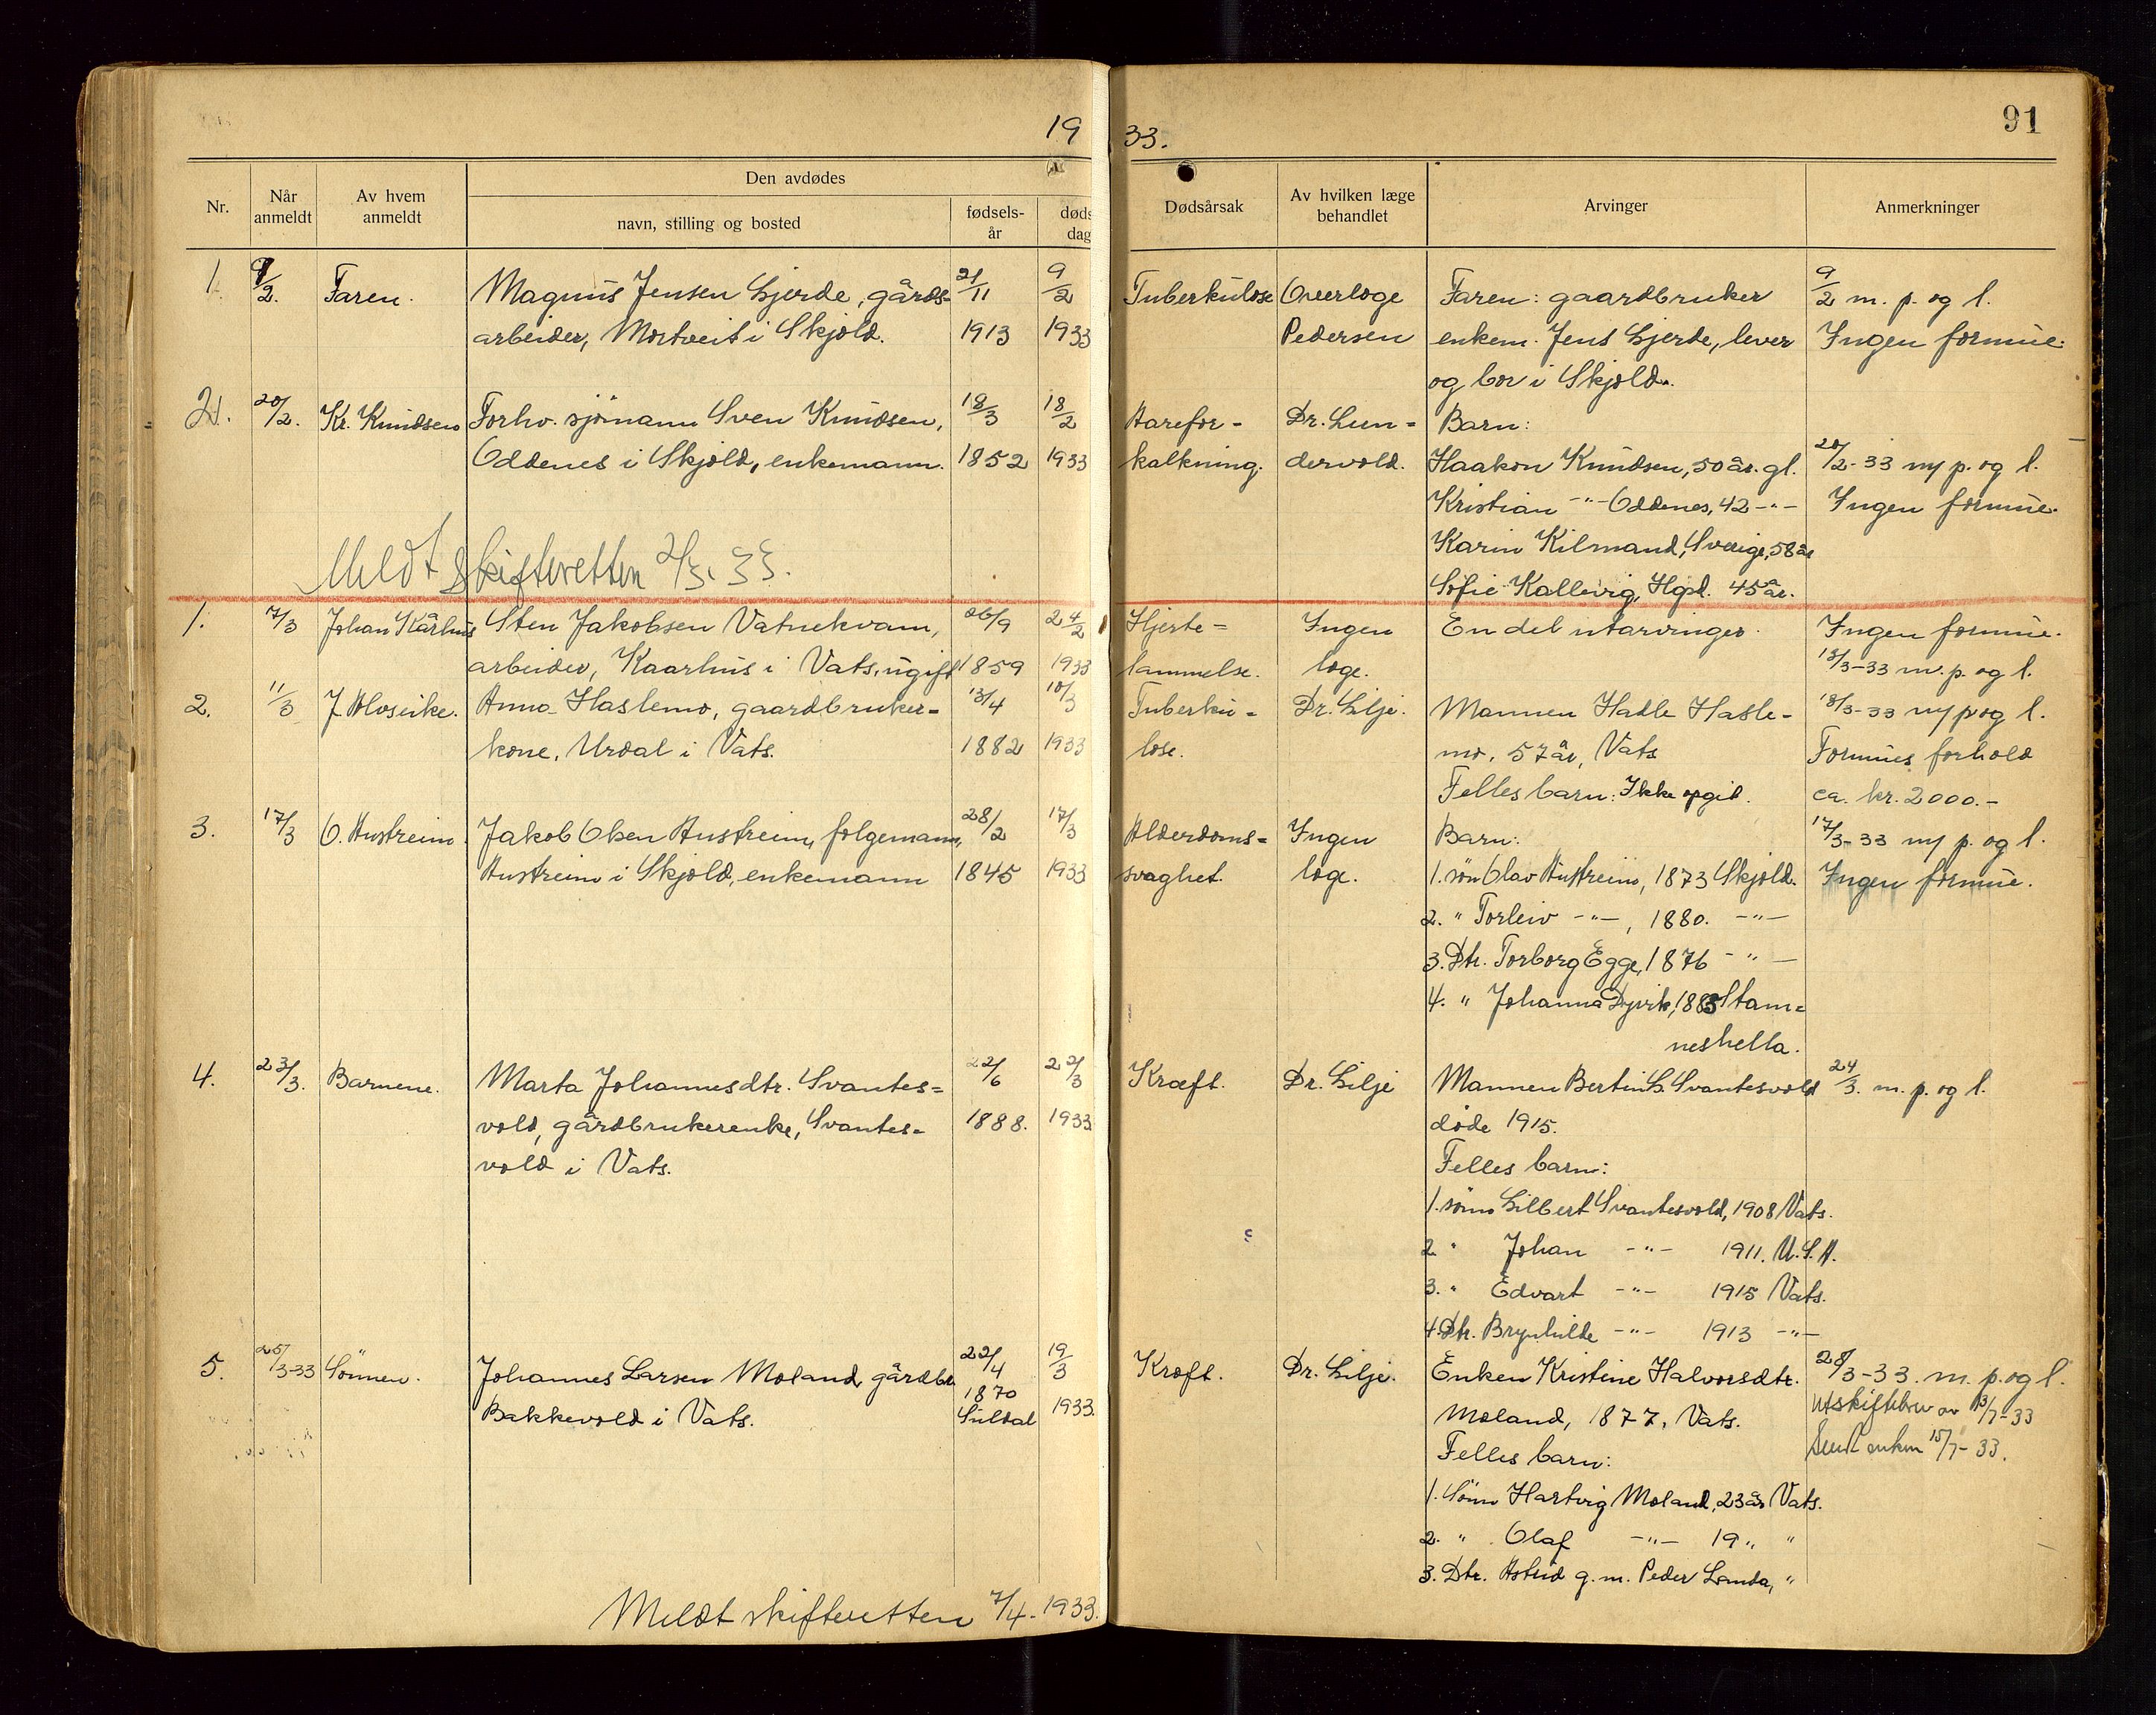 19 33.
91
Nr. Når anmeldt Av hvem anmeldt Den avdødes navn, stilling og bosted fødsels-år døds dag Dødsårsak Av hvilken læge behandlet Arvinger Anmerkninger
1. 9/2. Faren. Magnus Jensen Gjerde, gårds- 21/11 9/2 Tuberkulose Overlæge Faren: gaardbruker 9/2 m. p. og l.
arbeider, Mortveit i Skjold. 1913 1933 Pedersen enkem. Jens Gjerde, lever Ingen formue.
og bor i Skjold.
2. 20/2. Kr. Knudsen Forhv. sjömann Sven Knudsen, 18/3 18/2 Aarefor- Dr. Lun= Barn:
Oddenes i Skjold, enkemann. 1852 1933 kalkning. dervold. Haakon Knudsen, 50 år. gl. 20/2-33 m p. og l.
Kristian -"- Oddenes, 42 -"- Ingen formue.
Karin Kilmand, Sverige, 58 år
Meldt Skifteretten 2/3. 33.
Sofie Kallevig, Hgsd. 45 år.
1. 17/3 Johan Kårhus Sten Jakobsen Vatnekvam, 26/9 24/2 Hjerte= Ingen En del utarvinger. Ingen formue.
arbeider, Kaarhus i Vats, ugift 1859 1933 lammelse. læge. 18/3-33 m. p. og l.
2. 11/3 J. Alvseike. Anna Haslemo, gaardbruker- 13/4 10/3 Tuberku= Dr. Lilje. Mannen Hadle Hasle- 18/3-33 m p og l.
kone, Urdal i Vats. 1882 1933 lose. mo, 57 år, Vats Formues forhold
Felles barn: Ikke opgit. ca. kr. 2000.-
3. 17/3 O. Austreim. Jakob Olsen Austreim, følgemann, 28/2 17/3 Alderdoms= Ingen Barn: 17/3-33 m p. og l.
Austreim i Skjold, enkemann 1845 1933 svaghet. læge. 1. sön Olav Austreim, 1873 Skjold. Ingen formue.
2. " Torleiv -"-, 1880. -"-
3. Dtr. Torborg Egge, 1876 -"-
4. " Johanna Dyvik, 1883 Stam=
neshella.
4. 23/3. Barnene. Marta Johannesdtr. Svantes= 22/6 22/3 Kræft. Dr. Lilje Mannen Bertin G. Svantesvold 24/3. m. p. og l.
vold, gårdbrukerenke, Svantes= 1888. 1933. døde 1915.
vold i Vats. Felles barn:
1. sönn Gilbert Svantesvold, 1908 Vats.
2. " Johan -"- 1911. U.S.A.
3. " Edvart -"- 1915 Vats.
4. Dtr. Brynhilde -"- 1913 -"-
5. 25/3-33 Sönnen. Johannes Larsen Moland, gårdbr. 22/4 19/3 Kræft. Dr. Lilje. Enken Kristine Halvorsdtr. 28/3-33. m. p. og l.
Bakkevold i Vats. 1870 Suldal 1933. Moland, 1877, Vats. Utskiftebrev av 13/7-33
Felles barn: Sendt enken 15/7-33.
1. Sönn Hartvig Moland, 23 år Vats.
2. " Olaf -"- 19 " "
3. Dtr. Astrid g. m. Peder Landa, "
Meldt skifteretten 7/4-1933.